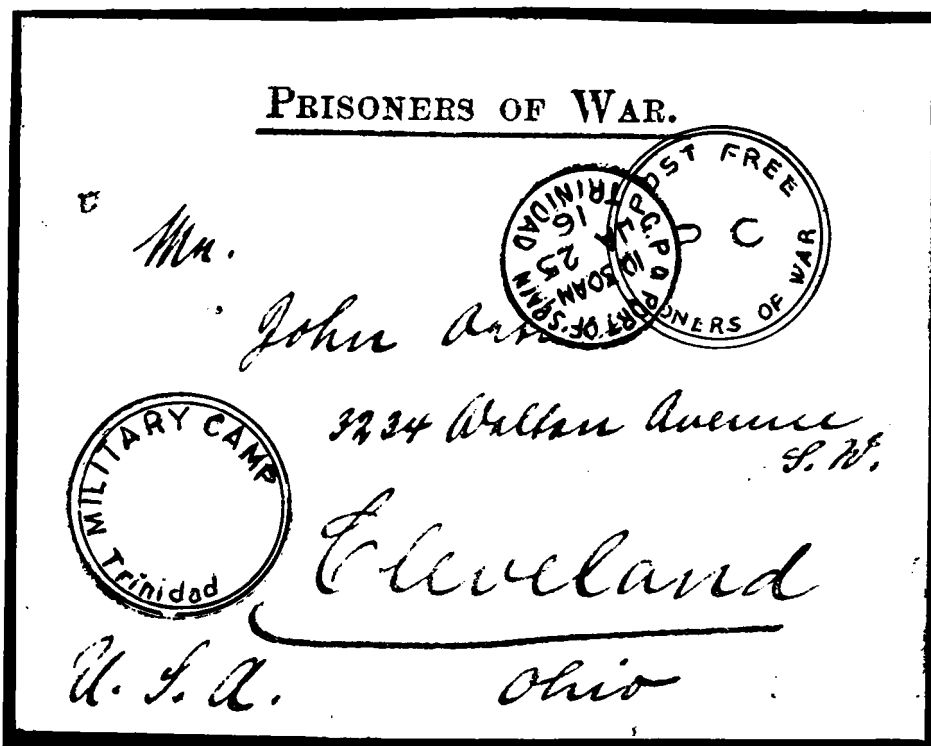 PRISONERS OF WAR.
POST FREE
P C
PRISONERS OF WAR
G.P.O PORT OF SPAIN TRINIDAD
10 30AM
25
16
Mr.
John
3234 Walton Avenue
S. W.
MILITARY CAMP
Trinidad
Cleveland
U. S. A. Ohio